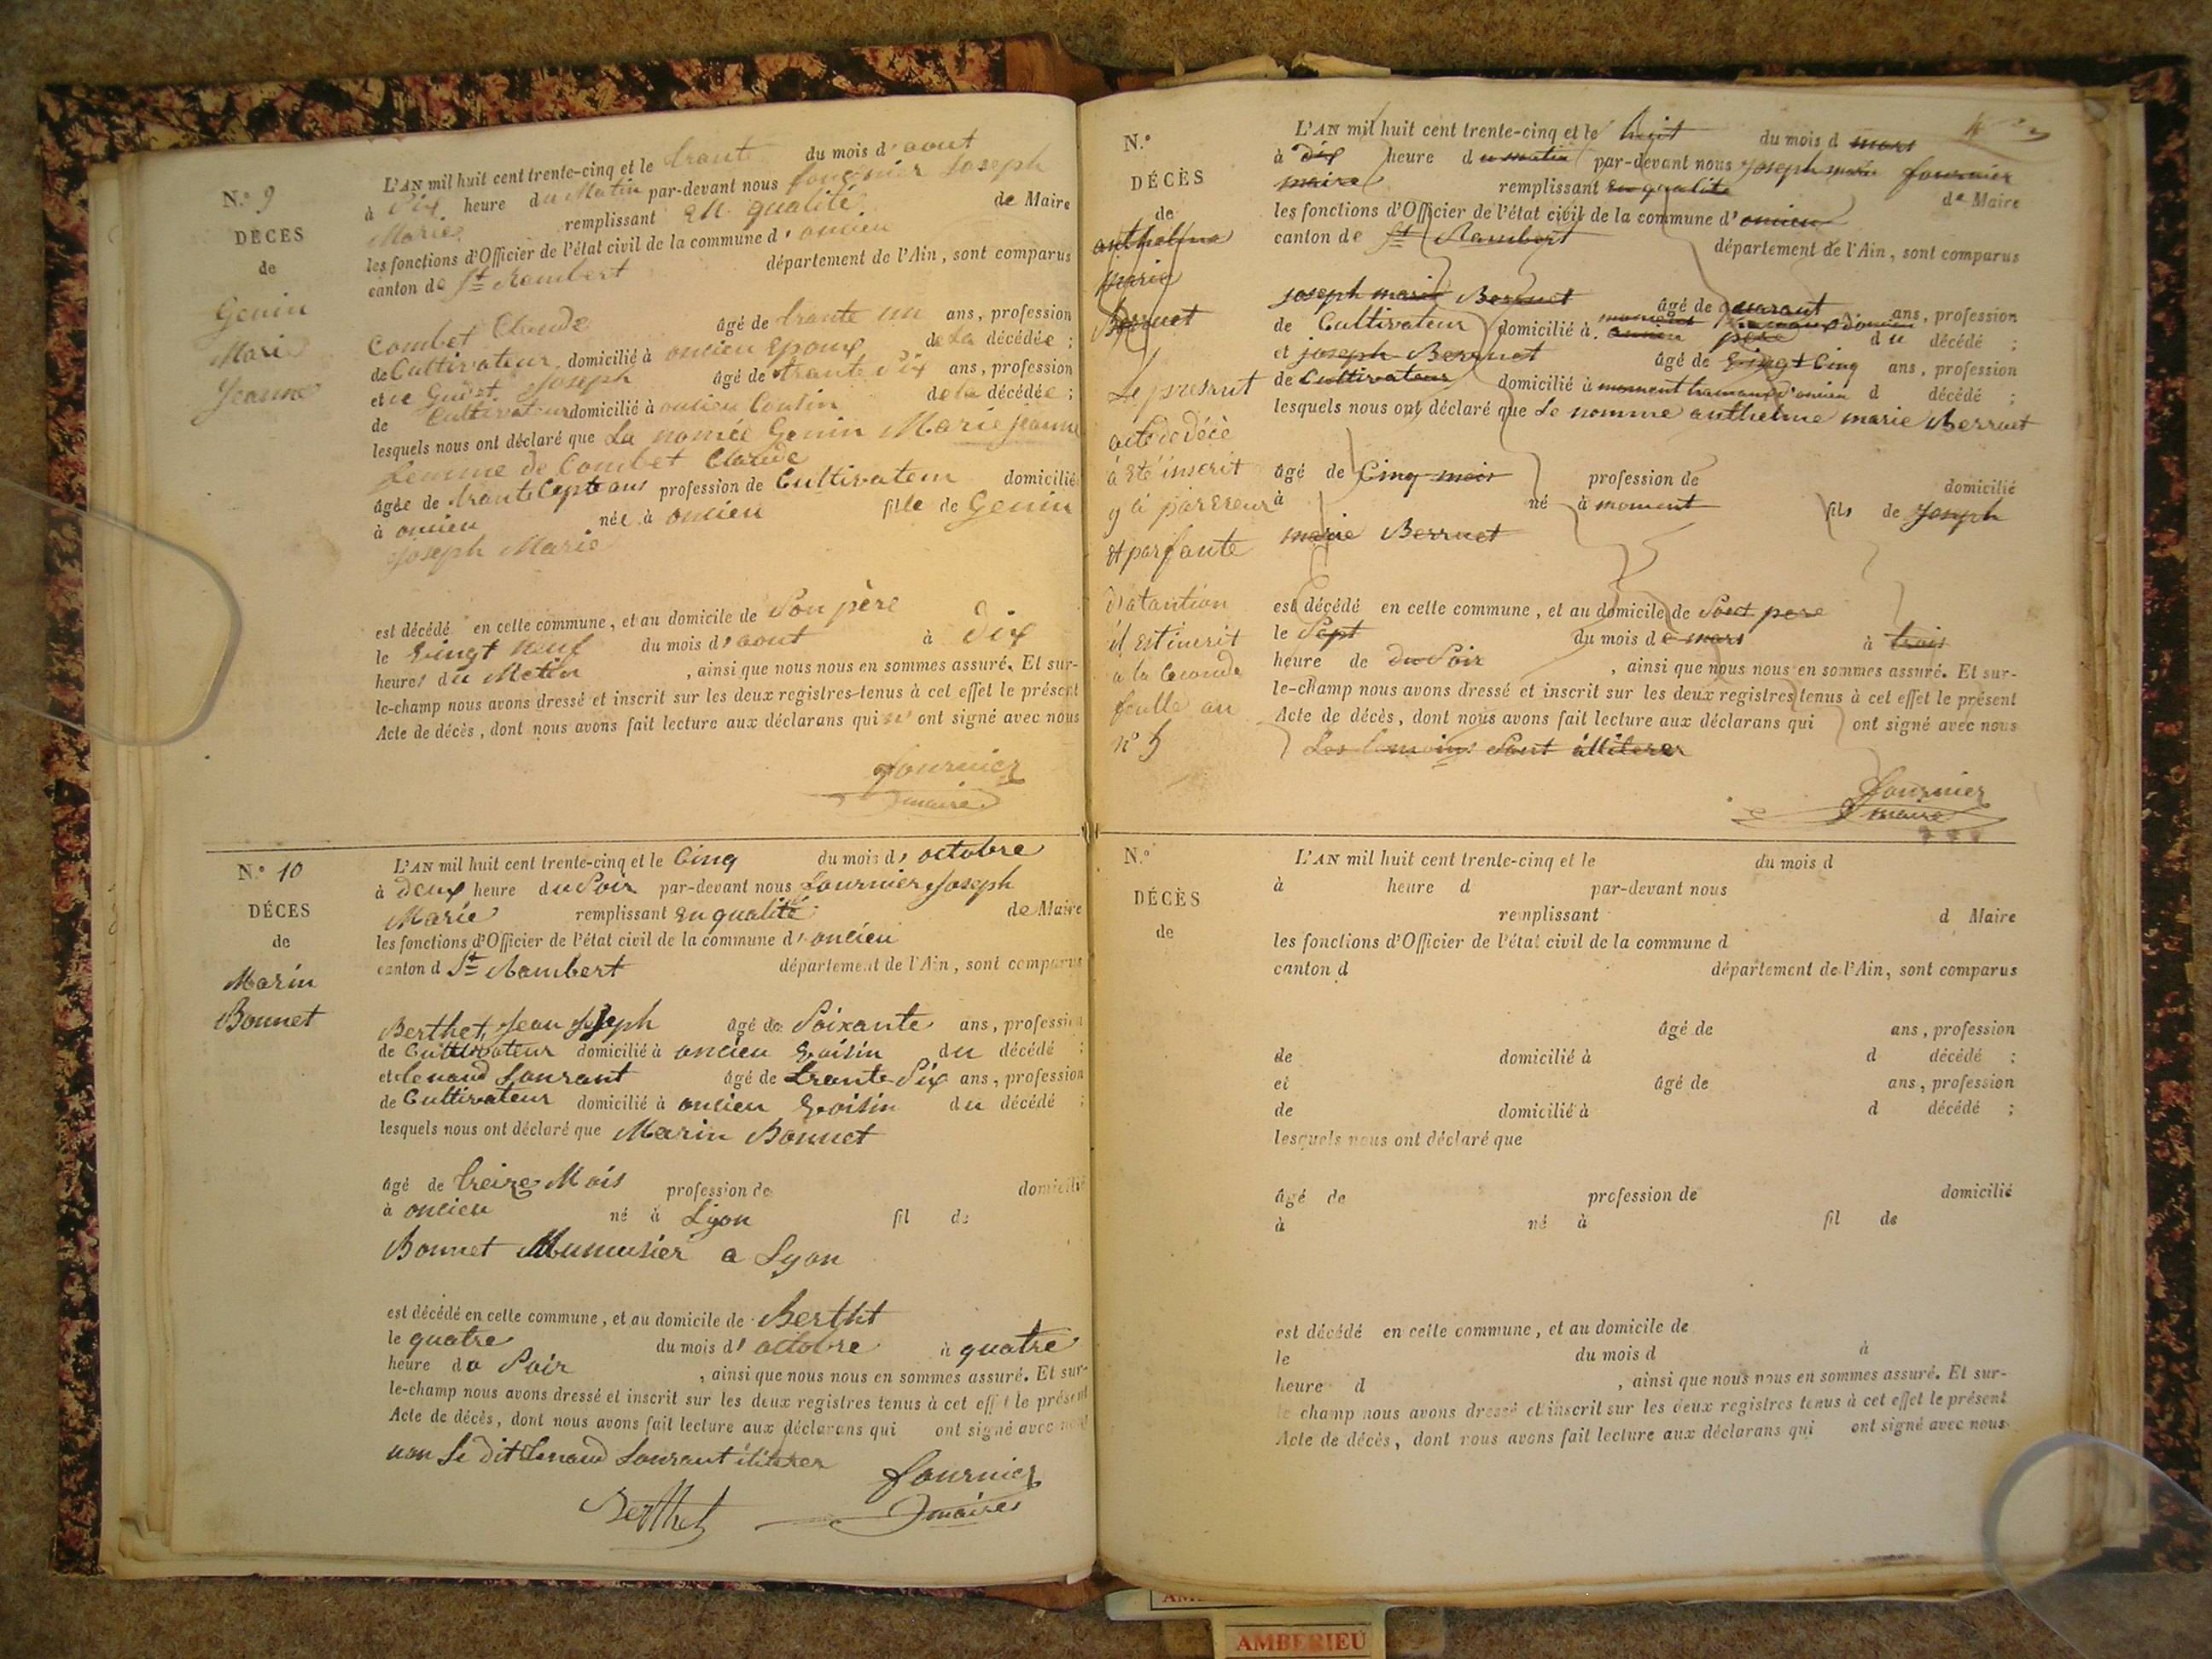 N.° 9
DÉCES
de
Genin
Marie
Jeanne
L'AN mil huit cent trente-cinq et le trante du mois d'aout
à Dix heure du Matin par-devant nous fournier Joseph
Marie remplissant en qualité de Maire
les fonctions d'Officier de l'état civil de la commune d'oncieu
canton de St Rambert département de l'Ain, sont comparus
Combet Claude âgé de trante un ans, profession
de Cultivateur domicilié à oncieu Epoux de La décédée ;
et Joseph âgé de trante Dix ans, profession
de Cultivateur domicilié à oncieu Coutin de la décédée ;
lesquels nous ont déclaré que La nomée Genin Marie jeanne
femme de Combet Claude
âgée de trante Cepte ans profession de Cultivateur domicilié
à oncieu née à oncieu fille de Genin
Joseph Marie
est décédé en celle commune, et au domicile de Son père
le vingt neuf du mois d'aout à Dix
heures du Metin , ainsi que nous nous en sommes assuré. Et sur-
le-champ nous avons dressé et inscrit sur les deux registres tenus à cet effet le présent
Acte de décès, dont nous avons fait lecture aux déclarans qui n' ont signé avec nous
fournier
maire
N.° 10
DÉCES
de
Marin
Bonnet
L'AN mil huit cent trente-cinq et le Cinq du mois d'octobre
à deux heure du Soir par-devant nous fournier Joseph
Marie remplissant en qualité de Maire
les fonctions d'Officier de l'état civil de la commune d'oncieu
canton d St Rambert département de l'Ain, sont comparus
Berthet, Jean Joseph âgé de Soixante ans, profession
de Cultivateur domicilié à oncieu voisin du décédé ;
et Lenaud Laurant âgé de trante Six ans, profession
de Cultivateur domicilié à oncieu voisin du décédé ;
lesquels nous ont déclaré que Marin Bonnet
âgé de treize Mois profession de domicilié
à oncieu né à Lyon fil de
Bonnet a Lyon
est décédé en celle commune, et au domicile de Bertht
le quatre du mois d'octobre à quatre
heure du Soir , ainsi que nous nous en sommes assuré. Et sur-
le-champ nous avons dressé et inscrit sur les deux registres tenus à cet effet le présent
Acte de décès, dont nous avons fait lecture aux déclarans qui ont signé avec nous
non Le dit Lenaud Laurant
fournier
Berthet maire
N.°
DÉCÈS
de
anthelme
marie
Berruet
Le presnut
acte de décè
à été inscrit
y à par ereur
et par faute
d'atantion
il est incrit
a la Ceconde
feulle au
n° 5
L'AN mil huit cent trente-cinq et le huit du mois d mars
à dix heure du matin par-devant nous joseph marie fournier
maire remplissant en qualité de Maire
les fonctions d'Officier de l'état civil de la commune d'oncieu
canton de St Rambert département de l'Ain, sont comparus
joseph marie Berruet âgé de quarant ans, profession
de Cultivateur domicilié à père du décédé ;
et joseph Berruet âgé de vingt Cinq ans, profession
de Cultivateur domicilié à d'oncieu d décédé ;
lesquels nous ont déclaré que Le nomme anthelme marie Berruet
âgé de Cinq mois profession de domicilié
à né à moment fils de Joseph
marie Berruet
est décédé en celle commune, et au domicile de Sont pere
le Sept du mois de mars à trois
heure de du Soir , ainsi que nous nous en sommes assuré. Et sur-
le-champ nous avons dressé et inscrit sur les deux registres tenus à cet effet le présent
Acte de décès, dont nous avons fait lecture aux déclarans qui ont signé avec nous
Les temoins Sont illiterer
fournier
maire
N.°
DÉCÈS
de
L'AN mil huit cent trente-cinq et le du mois d
à heure d par-devant nous
remplissant d Maire
les fonctions d'Officier de l'état civil de la commune d
canton d département de l'Ain, sont comparus
âgé de ans, profession
de domicilié à d décédé ;
et âgé de ans, profession
de domicilié à d décédé ;
lesquels nous ont déclaré que
âgé de profession de domicilié
à né à fil de
est décédé en celle commune, et au domicile de
le du mois d à
heure d , ainsi que nous nous en sommes assuré. Et sur-
le-champ nous avons dressé et inscrit sur les deux registres tenus à cet effet le présent
Acte de décès, dont nous avons fait lecture aux déclarans qui ont signé avec nous
AMBERIEU